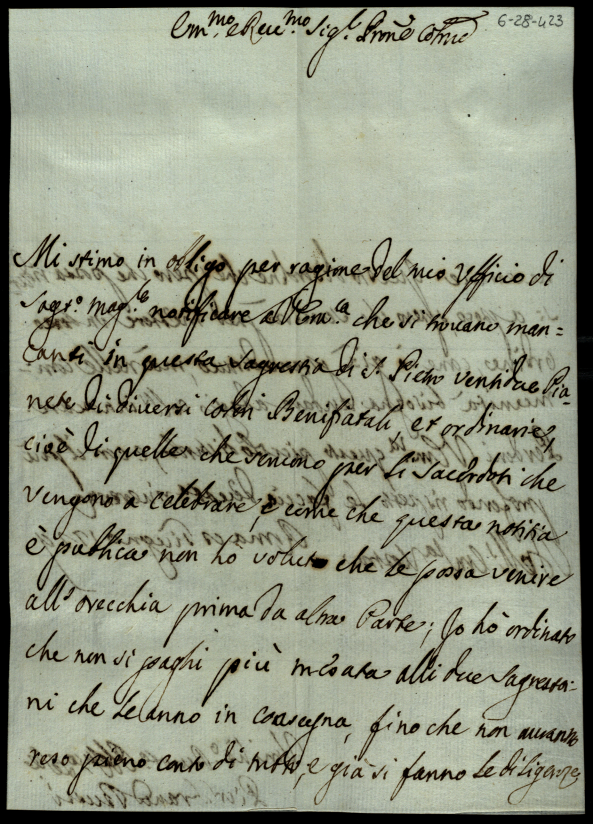 6-28-423
Em.mo, e Rev.mo Sig.r Prone
Mi stimo in obligo per ragione del mio Ufficio di
Sagr.o Mag.re notificare all'Em.za che si trovano man=
canti in questa Sagrestia di S. Pietro ventidue Pia=
nete di diversi colori Benifiatali, et ordinarie,
cioè di quelle che servono per li Sacerdoti che
vengono a celebrare, e come che questa notitia
è publica non ho voluto che le possa venire
all'orecchia prima da altra Parte; Io hò ordinato
che non si paghi più mesata alli due Sagresta=
ni che le anno in consegna, fino che non averanno
reso pieno conto di tutto, e già si fanno le diligenze